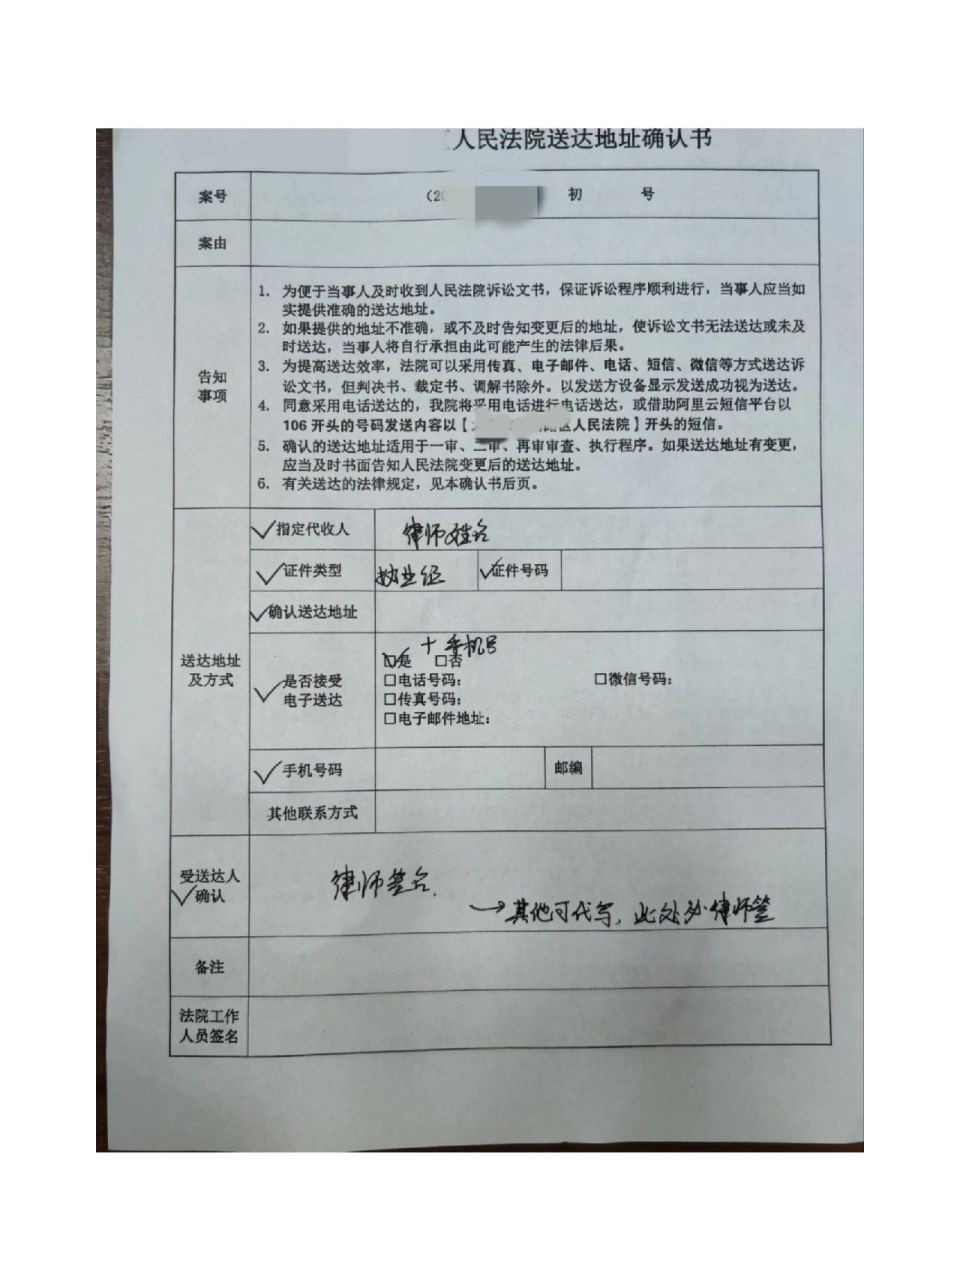 人民法院送达地址确认书
案号 (20 初 号
案由
告知事项
1. 为便于当事人及时收到人民法院诉讼文书，保证诉讼程序顺利进行，当事人应当如
实提供准确的送达地址。
2. 如果提供的地址不准确，或不及时告知变更后的地址，使诉讼文书无法送达或未及
时送达，当事人将自行承担由此可能产生的法律后果。
3. 为提高送达效率，法院可以采用传真、电子邮件、电话、短信、微信等方式送达诉
讼文书，但判决书、裁定书、调解书除外。以发送方设备显示发送成功视为送达。
4. 同意采用电话送达的，我院将采用电话进行电话送达，或借助阿里云短信平台以
106 开头的号码发送内容以【 区人民法院】开头的短信。
5. 确认的送达地址适用于一审、二审、再审审查、执行程序。如果送达地址有变更，
应当及时书面告知人民法院变更后的送达地址。
6. 有关送达的法律规定，见本确认书后页。
送达地址
及方式
✓指定代收人 律师姓名
✓证件类型 执业证 ✓证件号码
✓确认送达地址
✓是否接受
电子送达
+ 手机号
☑是 □否
□电话号码： □微信号码：
□传真号码：
□电子邮件地址：
✓手机号码 邮编
其他联系方式
受送达人
✓确认
律师签名.
→其他可代写，此处必律师签
备注
法院工作
人员签名